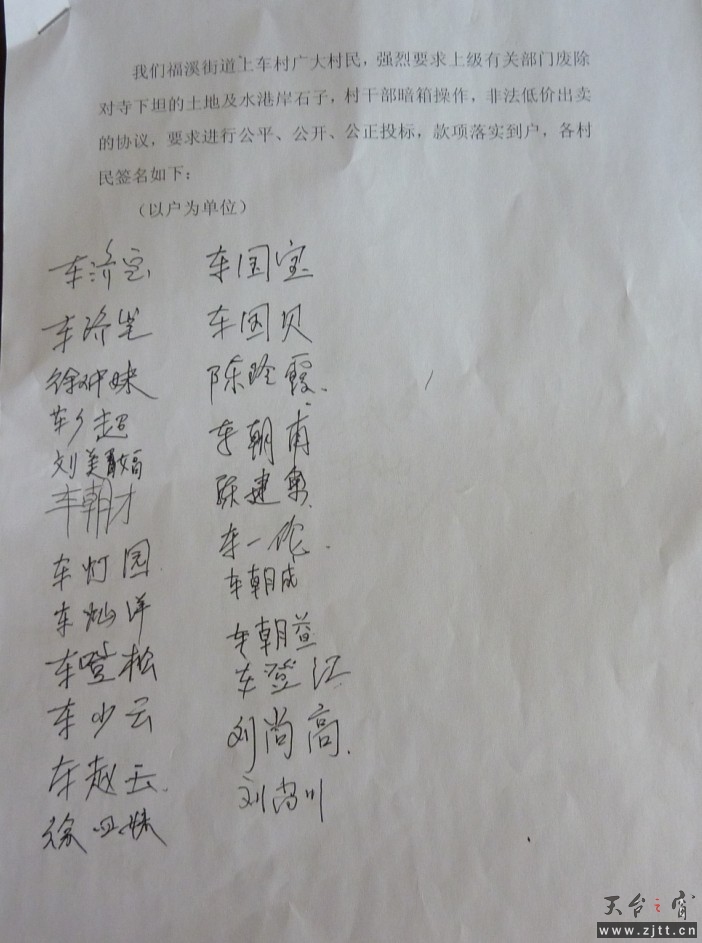 我们福溪街道上车村广大村民，强烈要求上级有关部门废除
对寺下坦的土地及水港岸石子，村干部暗箱操作，非法低价出卖
的协议，要求进行公平、公开、公正投标，款项落实到户，各村
民签名如下：
（以户为单位）
车国宝
车国贝
陈玲霞
车朝甫
车朝才
车灯园
车一
车朝成
车灿洋
车朝益
车登松
车登江
车少云
刘尚高
车赵云
刘尚川
天台之窗
www.zjtt.cn